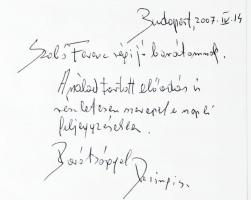 Budapest, 2007. IV. 14
Szabó Ferenc régi jó barátomnak.
A nálad tartott előadás is
részletesen szerepel e napló
feljegyzésekben.
Barátsággal